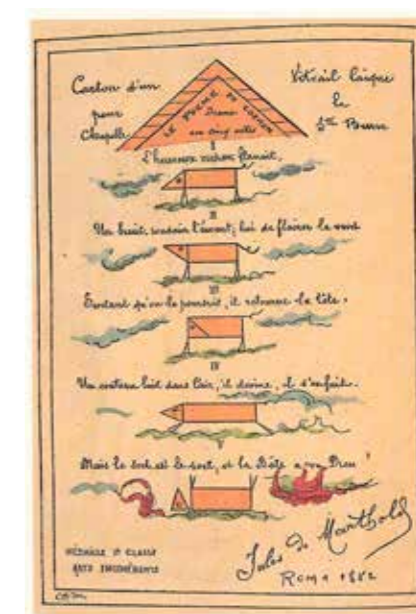 Carton d'un
pour
Chapelle
Vitrail laïque
la
Ste
LE POEME DU COCHON
Drame
en cinq actes
I
L'heureux cochon flânait,
II
Un bruit soudain l'émeut; lui de flairer le vent
III
Sentant qu'on le poursuit, il retourne la tête.
IV
Un couteau luit dans l'air, il devine, il s'enfuit.
V
Mais le sort est le sort, et la Bête a vu Dieu!
MÉDAILLE 1e CLASSE
ARTS INCOHÉRENTS
Jules de Marthold
ROMA 1882